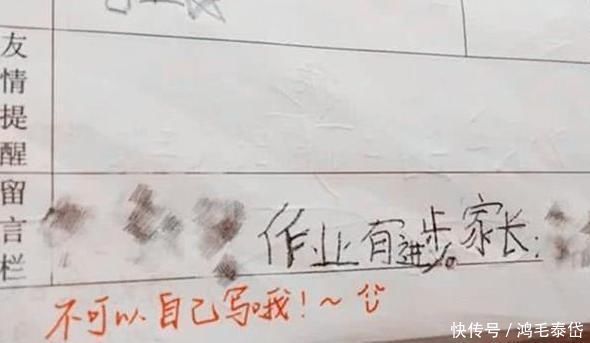 友情提醒
留言栏
作业有进步。家长:
不可以自己写哦!~
快传号/鸿毛泰岱